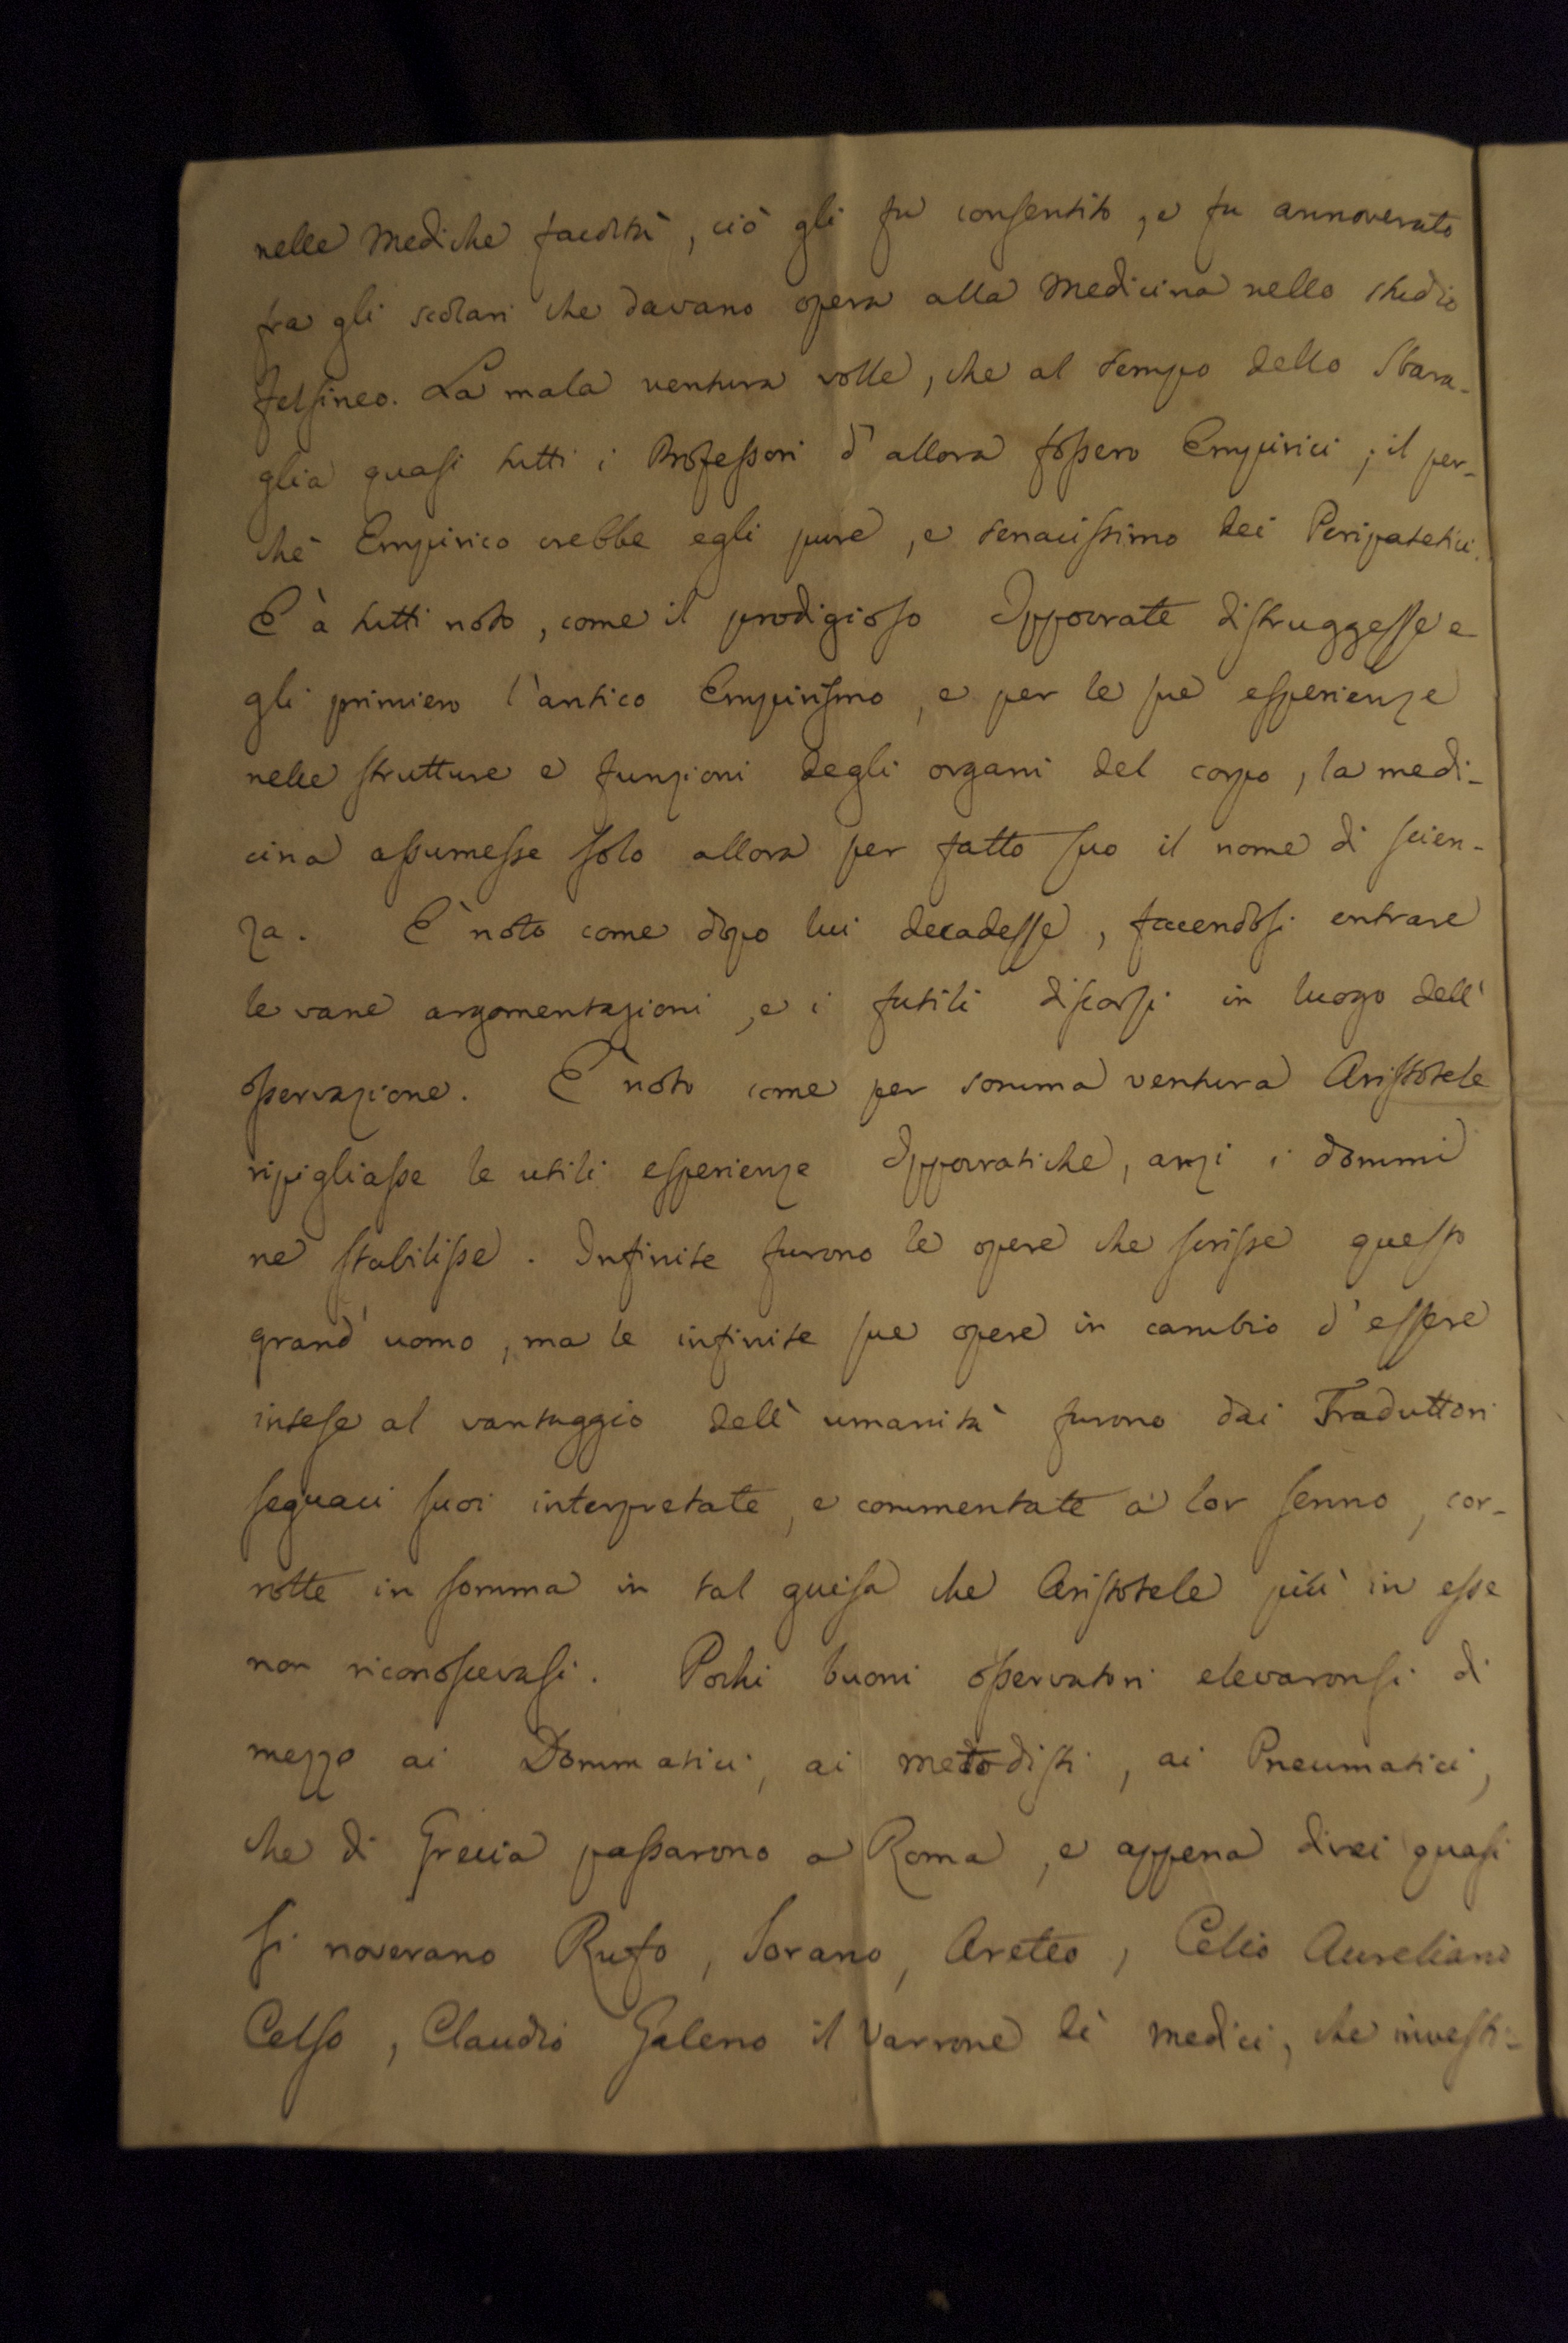 nelle Mediche facoltà, ciò gli fu consentito, e fu annoverato
fra gli scolari che davano opera alla Medicina nello studio
felsineo. La mala ventura volle, che al tempo dello Sbara-
glia quasi tutti i Professori d'allora fossero Empirici; il per-
chè Empirico crebbe egli pure, e tenacissimo dei Peripatetici.
E à tutti noto, come il prodigioso Ippocrate distruggesse e-
gli primiero l'antico Empirismo, e per le sue esperienze
nelle strutture e funzioni degli organi del corpo, la medi-
cina assumesse solo allora per fatto suo il nome di scien-
za. E' noto come dopo lui decadesse, facendosi entrare
le vane argomentazioni, e i futili discorsi in luogo dell'
osservazione. E' noto come per somma ventura Aristotele
ripigliasse le utili esperienze Ippocratiche, anzi i dommi
ne stabilisse. Infinite furono le opere che scrisse questo
grand'uomo, ma le infinite sue opere in cambio d'essere
intese al vantaggio dell'umanità furono dai Traduttori
seguaci suoi interpretate, e commentate a lor senno, cor-
rotte in somma in tal guisa che Aristotele più in esse
non riconoscevasi. Pochi buoni osservatori elevaronsi di
mezzo ai Dommatici, ai metodisti, ai Pneumatici,
che di Grecia passarono a Roma, e appena direi quasi
si noverano Rufo, Sorano, Areteo, Celio Aureliano
Celso, Claudio Galeno il Varrone de' medici, che investi-